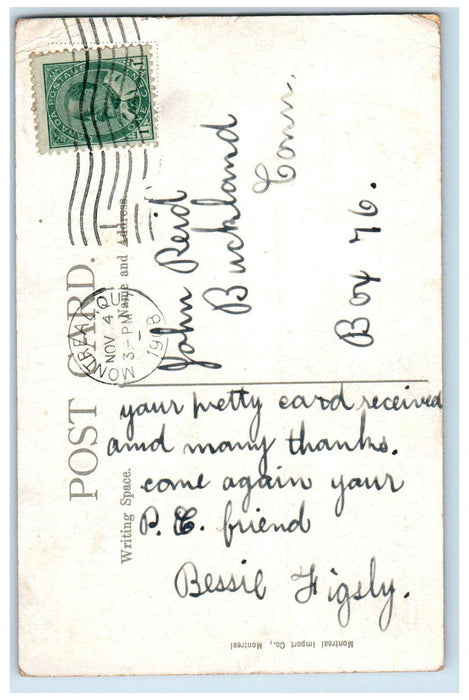 CANADA POSTAGE
ONE CENT
1 1
MONTREAL P.Q.
NOV 4
3 - PM
1908
POST CARD.
Writing Space.
Name and Address.
John Reid
Buckland
Conn.
Box 76.
your pretty card received
and many thanks.
come again your
P. C. friend
Bessie Figsly.
Montreal Import Co., Montreal